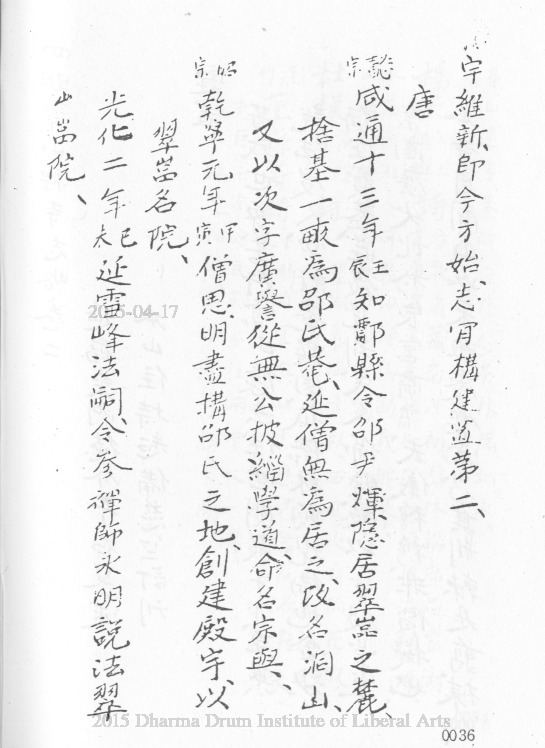 宇維新、即今方始、志肎構建遠第二、
唐
懿宗咸通十三年壬辰知鄮縣令邵尹煇隱居翠嵓之麓、
捨基一畝為邵氏菴、延僧無為居之、改名洞山、
又以次字廣譽從無公披緇學道、命名宗與、
昭宗乾寧元年甲寅僧思明盡構邵氏之地、創建殿宇、以
翠嵓名院、
光化二年己未延雪峰法嗣、令參禪師永明說法翠
山嵓院、
2015-04-17
2015 Dharma Drum Institute of Liberal Arts
0036